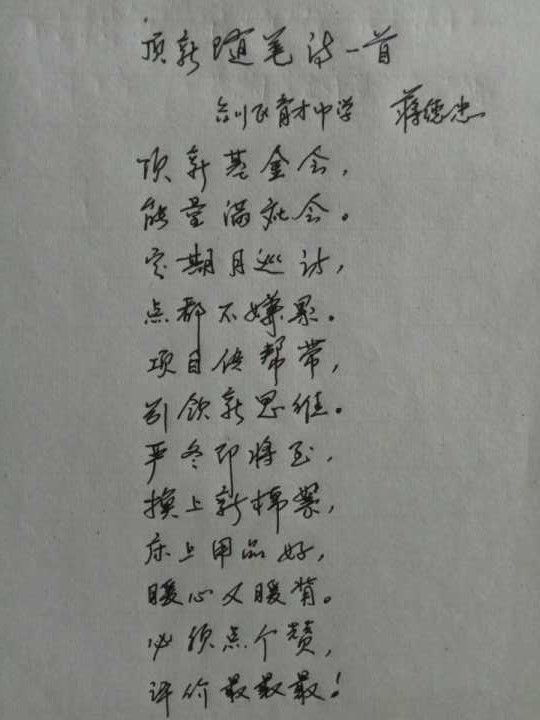 顶新随笔诗一首
育才中学 蒋德忠
顶新基金会,
能量满社会。
定期月巡访,
点都不嫌累。
项目传帮带,
引领新思维。
严冬即将至,
换上新棉絮,
床上用品好,
暖心又暖背。
必须点个赞,
评价最最最!